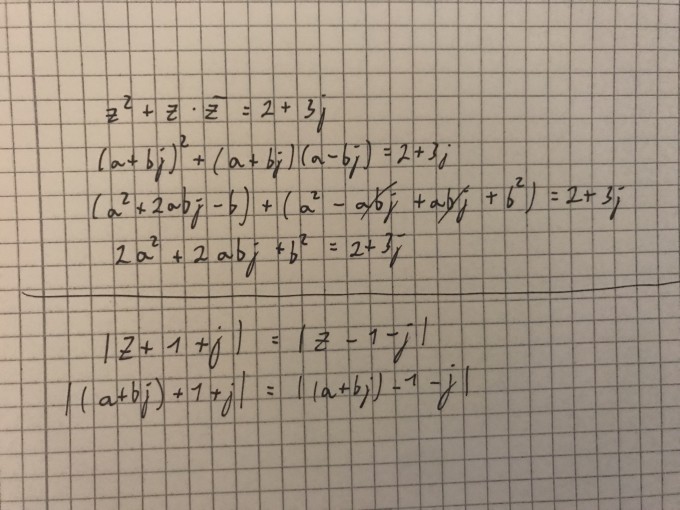 z² + z · z̄ = 2 + 3j
(a+bj)² + (a+bj)(a-bj) = 2+3j
(a² + 2abj - b) + (a² - abj + abj + b²) = 2+3j
2a² + 2abj + b² = 2+3j
|z + 1 + j| = |z - 1 - j|
|(a+bj) + 1 + j| = |(a+bj) - 1 - j|